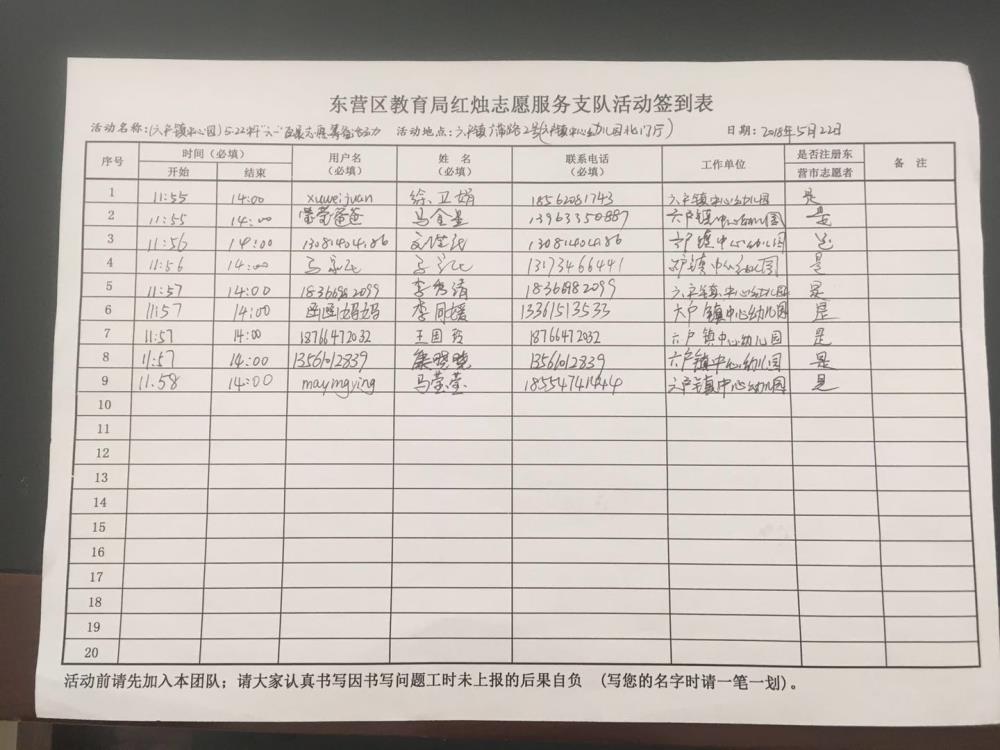 东营区教育局红烛志愿服务支队活动签到表
活动名称:(六户镇中心园)5.22 活动地点:六户镇 路2号(六户镇中心幼儿园北门厅) 日期:2018年5月22日
序号 时间(必填) 用户名(必填) 姓名(必填) 联系电话(必填) 工作单位 是否注册东营市志愿者 备注
开始 结束
1 11:55 14:00 xuweijuan 徐卫娟 18562081743 六户镇中心幼儿园 是
2 11:55 14:00 莹莹爸爸 马金星 13963350887 六户镇中心幼儿园 是
3 11:56 14:00 13081404186 13081404186 六户镇中心幼儿园 是
4 11:56 14:00 13173466441 六户镇中心幼儿园 是
5 11:57 14:00 18366982099 李秀清 18366982099 六户镇中心幼儿园 是
6 11:57 14:00 函函妈妈 李同媛 13361513533 六户镇中心幼儿园 是
7 11:57 14:00 18766472032 王国玲 18766472032 六户镇中心幼儿园 是
8 11:57 14:00 13561012839 晓 13561012839 六户镇中心幼儿园 是
9 11.58 14:00 mayingying 马莹莹 六户镇中心幼儿园 是
10
11
12
13
14
15
16
17
18
19
20
活动前请先加入本团队；请大家认真书写因书写问题工时未上报的后果自负 (写您的名字时请一笔一划)。